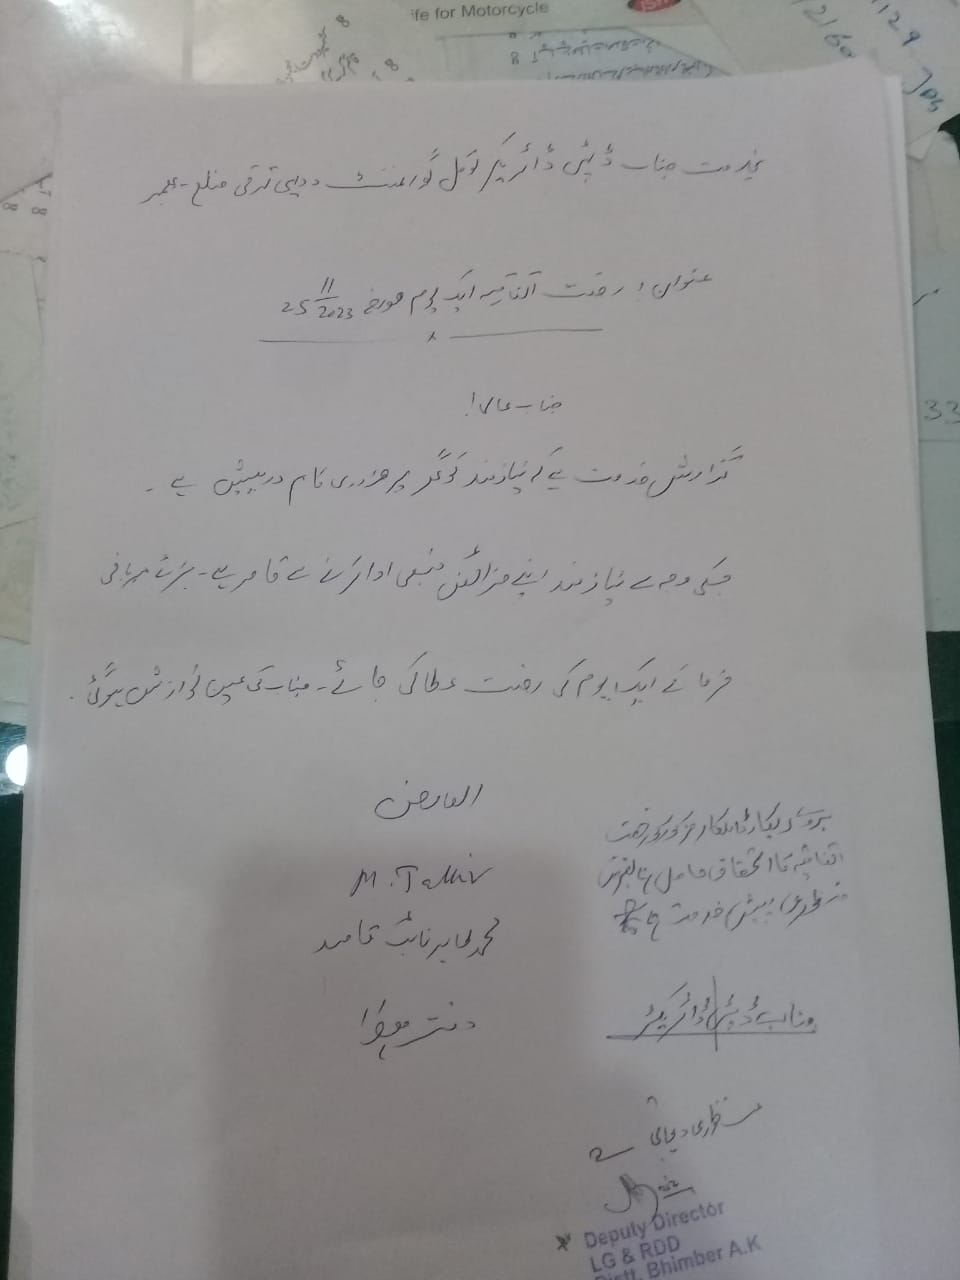 ife for Motorcycle
بخدمت جناب ڈپٹی ڈائریکٹر لوکل گورنمنٹ و دیہی ترقی ضلع بھمبر
عنوان: رخصت اتفاقیہ ایک یوم مورخہ 25/11/2023
جناب عالی!
گزارش خدمت ہے کہ نیازمند کو گھر پر ضروری کام درپیش ہے ۔
جسکی وجہ سے نیازمند اپنے فرائض منصبی ادا کرنے سے قاصر ہے۔ براے مہربانی
فرما کے ایک یوم کی رخصت عطا کی جائے۔ جناب کی عین نوازش ہوگی۔
العارض
M. Tahir
محمد طاہر نائب قاصد
دفتر ھذا
بروے ریکارڈ اہلکار مذکور رخصت
اتفاقیہ کا استحقاق حامل ہے بغرض
منظوری پیش خدمت ہے
جناب ڈپٹی ڈائریکٹر
منظوری دیجاتی ہے
Deputy Director
LG & RDD
Distt. Bhimber A.K